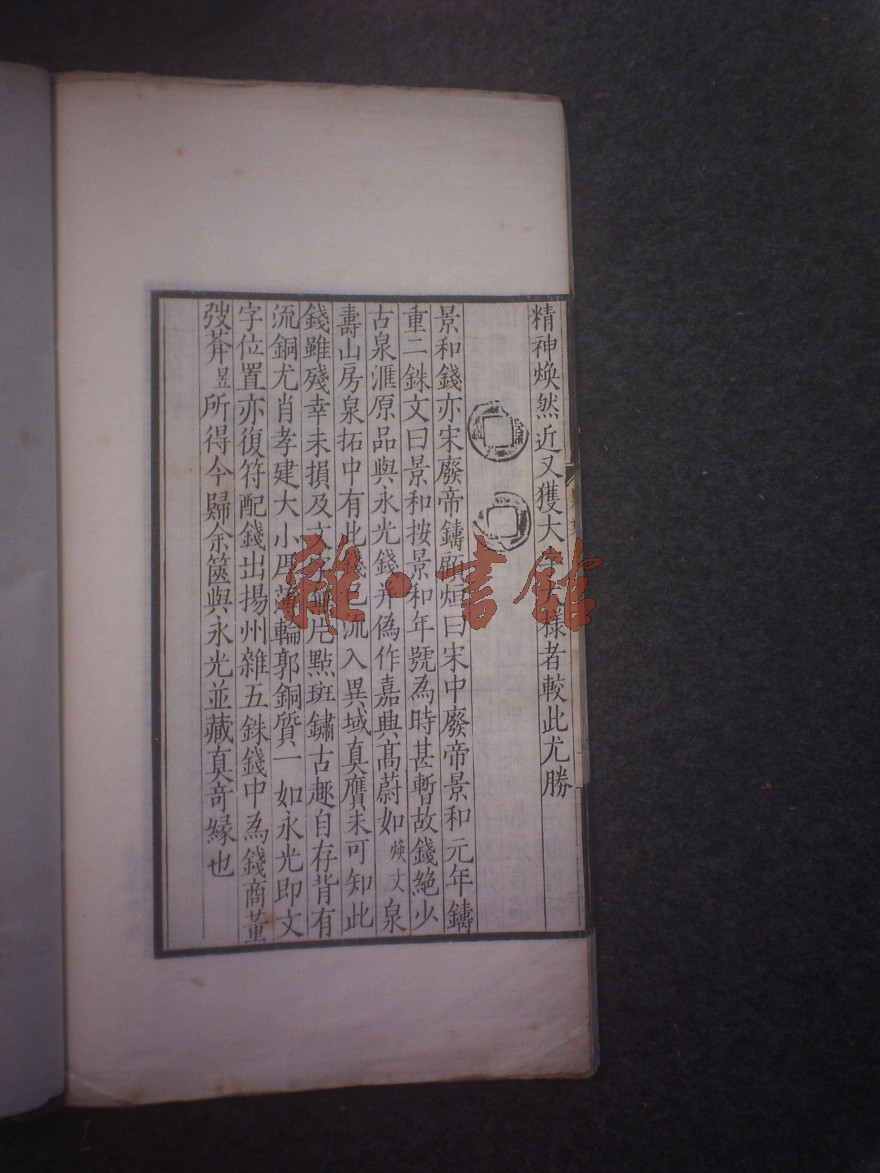 精神煥然近又獲大字大樣者較此尤勝
景和錢亦宋廢帝鑄顧烜曰宋中廢帝景和元年鑄
重二銖文曰景和按景和年號為時甚暫故錢絕少
古泉滙原品與永光錢并偽作嘉興髙蔚如煥文泉
壽山房泉拓中有此錢已流入異域真贋未可知此
錢雖殘幸未損及文字片點班鏽古趣自存背有
流銅尤肖孝建大小厚薄輪郭銅質一如永光即文
字位置亦復符配錢出揚州雜五銖錢中為錢商董
弢葊昱所得今歸余篋與永光並藏真奇緣也
雜·書館